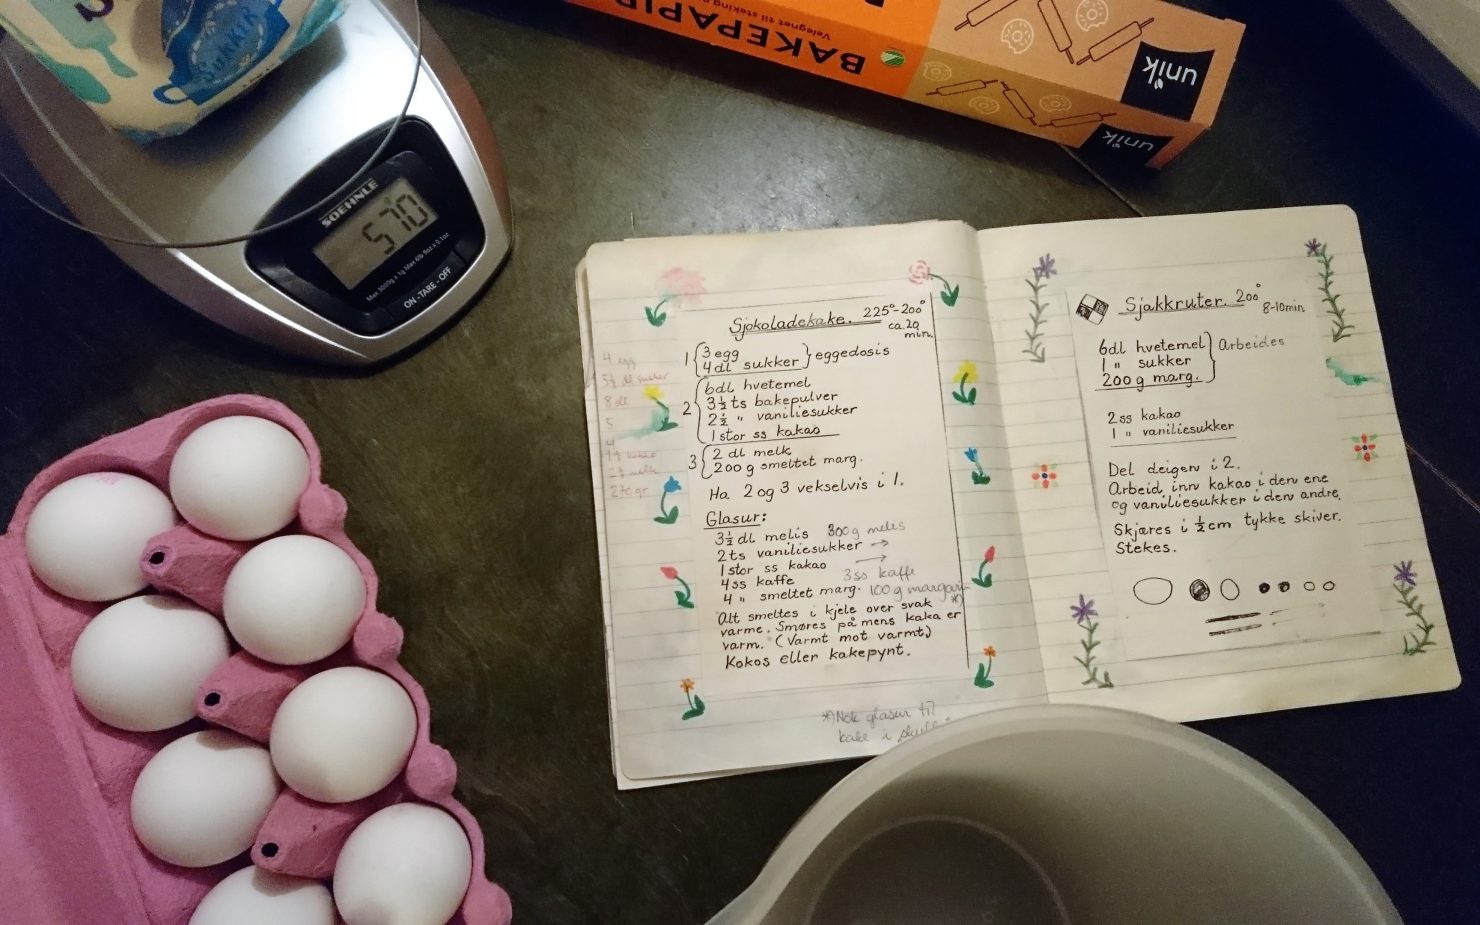 Sukker
SOEHNLE
570
Max 5000g x 1g Max 11lb 9oz x 0.1oz
ON - TARE - OFF
BAKEPAPIR
Velegnet til steking
unik
unik
Sjokoladekake. 225°-200°
ca. 20
min.
1 3 egg
4 dl sukker eggedosis
2 6dl hvetemel
3½ ts bakepulver
2½ " vaniliesukker
1 stor ss kakao
3 2 dl melk
200 g smeltet marg.
Ha 2 og 3 vekselvis i 1.
Glasur:
3½ dl melis 300g melis
2 ts vaniliesukker →
1 stor ss kakao →
4 ss kaffe 3 ss kaffe
4 " smeltet marg. 100 g margarin
Alt smeltes i kjele over svak *)
varme. Smøres på mens kaka er
varm. (Varmt mot varmt)
Kokos eller kakepynt.
*) Nok glasur til
kake i
4 egg
5½ dl sukker
8 dl
5
4
1½ kakao
2½ melk
270 gr
Sjakkruter. 200°
8-10min
6dl hvetemel
1 " sukker Arbeides
200 g marg.
2 ss kakao
1 " vaniliesukker
Del deigen i 2.
Arbeid inn kakao i den ene
og vaniliesukker i den andre.
Skjæres i ½ cm tykke skiver.
Stekes.